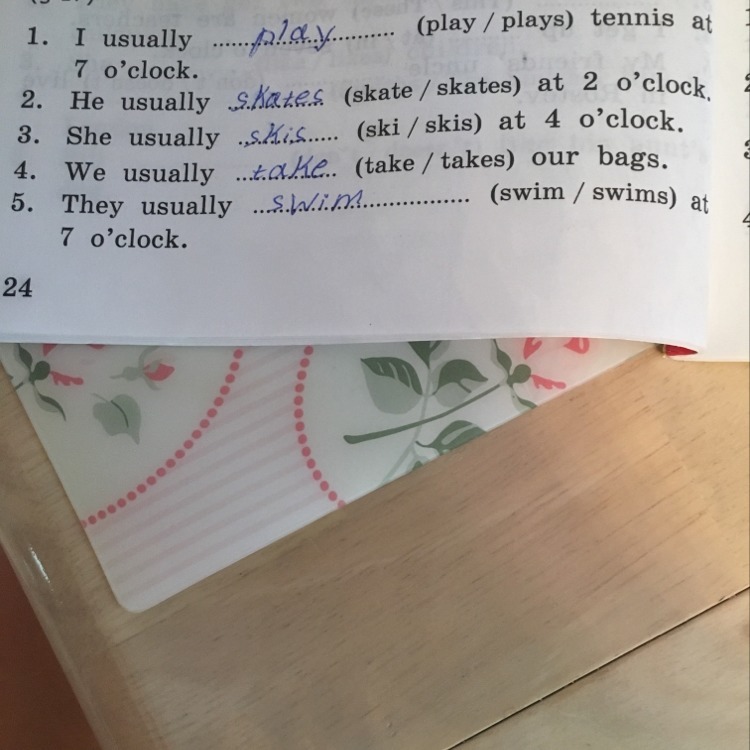 1. I usually ......play.......... (play / plays) tennis at
7 o'clock.
2. He usually .skates (skate / skates) at 2 o'clock.
3. She usually ..skis..... (ski / skis) at 4 o'clock.
4. We usually ...take.. (take / takes) our bags.
5. They usually ....swim............... (swim / swims) at
7 o'clock.
24